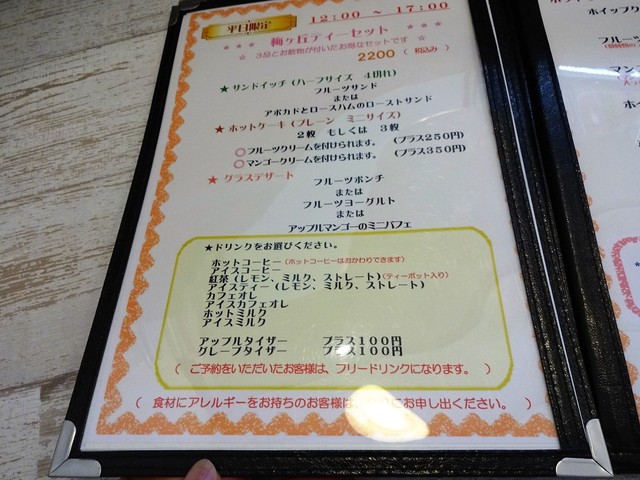 平日限定
12:00 ～ 17:00
＊＊＊ 梅ヶ丘ティーセット ＊＊＊
☆ 3品とお飲物が付いたお得なセットです ☆
2200（税込み）
★サンドイッチ（ハーフサイズ 4切れ）
フルーツサンド
または
アボカドとロースハムのローストサンド
★ホットケーキ（プレーン ミニサイズ）
2枚 もしくは 3枚
◎フルーツクリームを付けられます。（プラス250円）
◎マンゴークリームを付けられます。（プラス350円）
★ グラスデザート
フルーツポンチ
または
フルーツヨーグルト
または
アップルマンゴーのミニパフェ
★ドリンクをお選びください。
ホットコーヒー（ホットコーヒーはおかわりできます）
アイスコーヒー
紅茶（レモン、ミルク、ストレート）（ティーポット入り）
アイスティー（レモン、ミルク、ストレート）
カフェオレ
アイスカフェオレ
ホットミルク
アイスミルク
アップルタイザー プラス100円
グレープタイザー プラス100円
（ ご予約をいただいたお客様は、フリードリンクになります。 ）
（ 食材にアレルギーをお持ちのお客様は、にお申し出ください。 ）
ホイップク
フルーツ
マンゴ